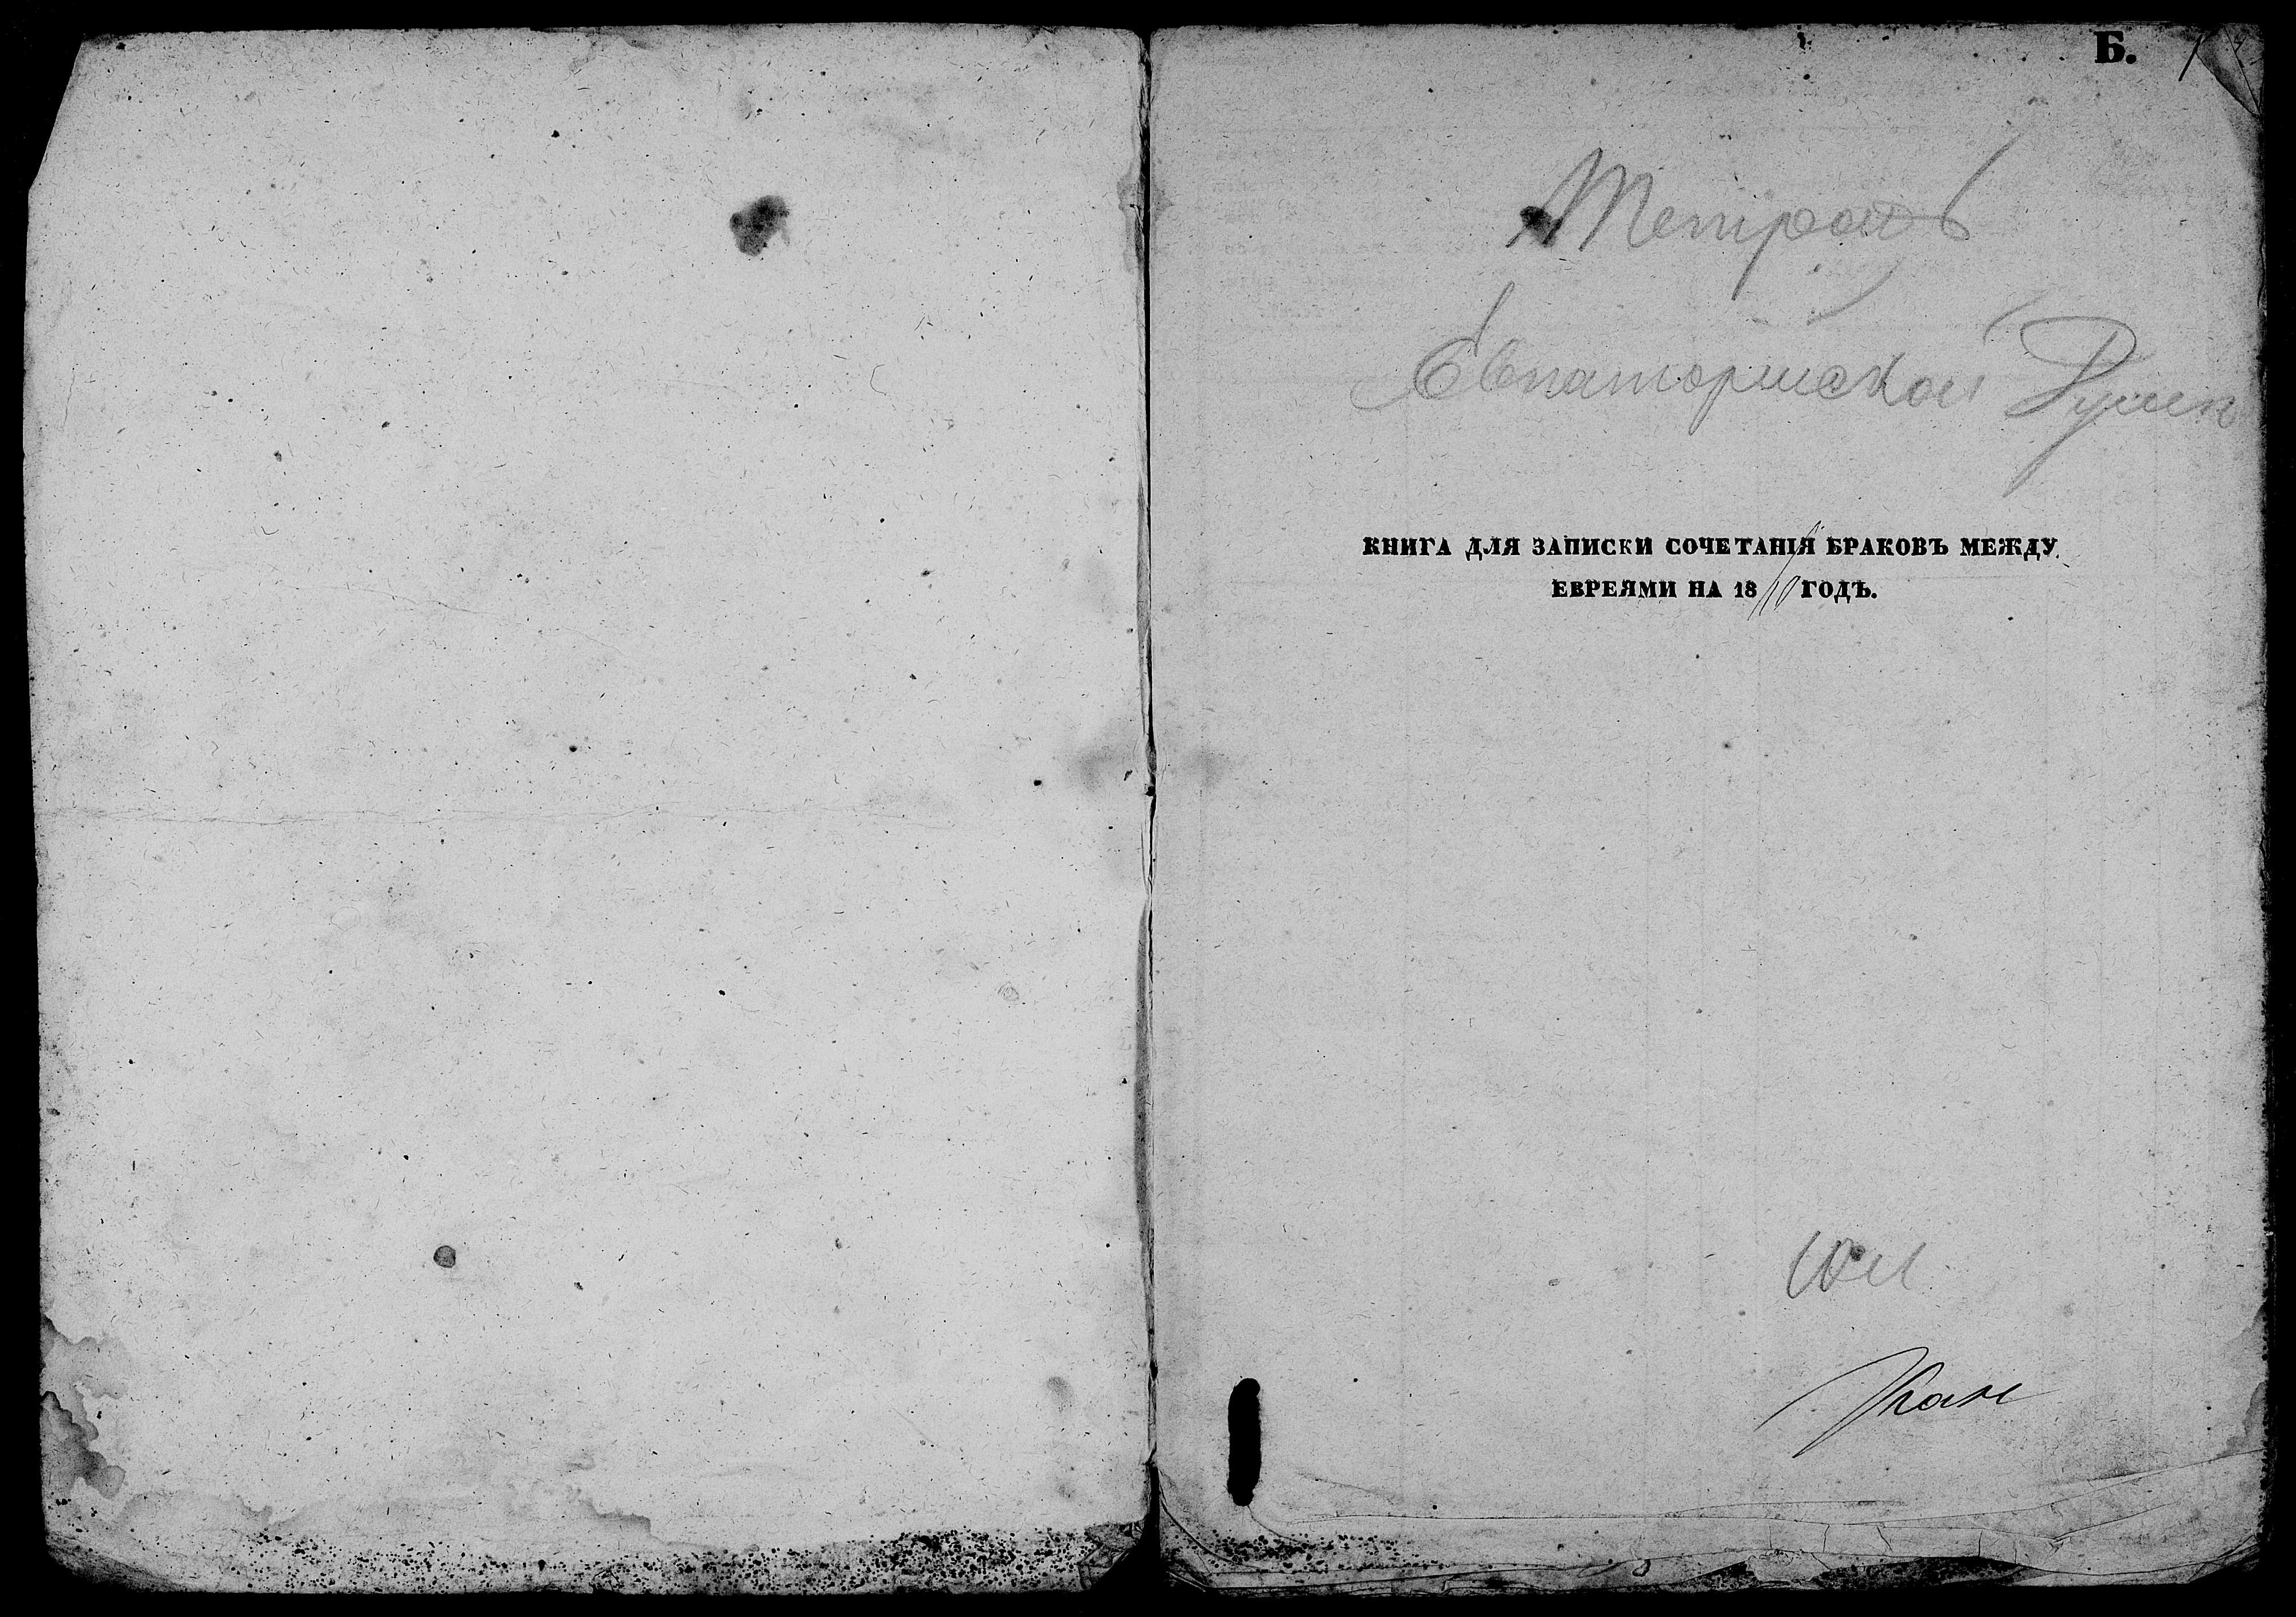 Б.
Тетрадь
Евпаторійской Думы
КНИГА ДЛЯ ЗАПИСКИ СОЧЕТАНІЯ БРАКОВЪ МЕЖДУ
ЕВРЕЯМИ НА 18 ГОДЪ.